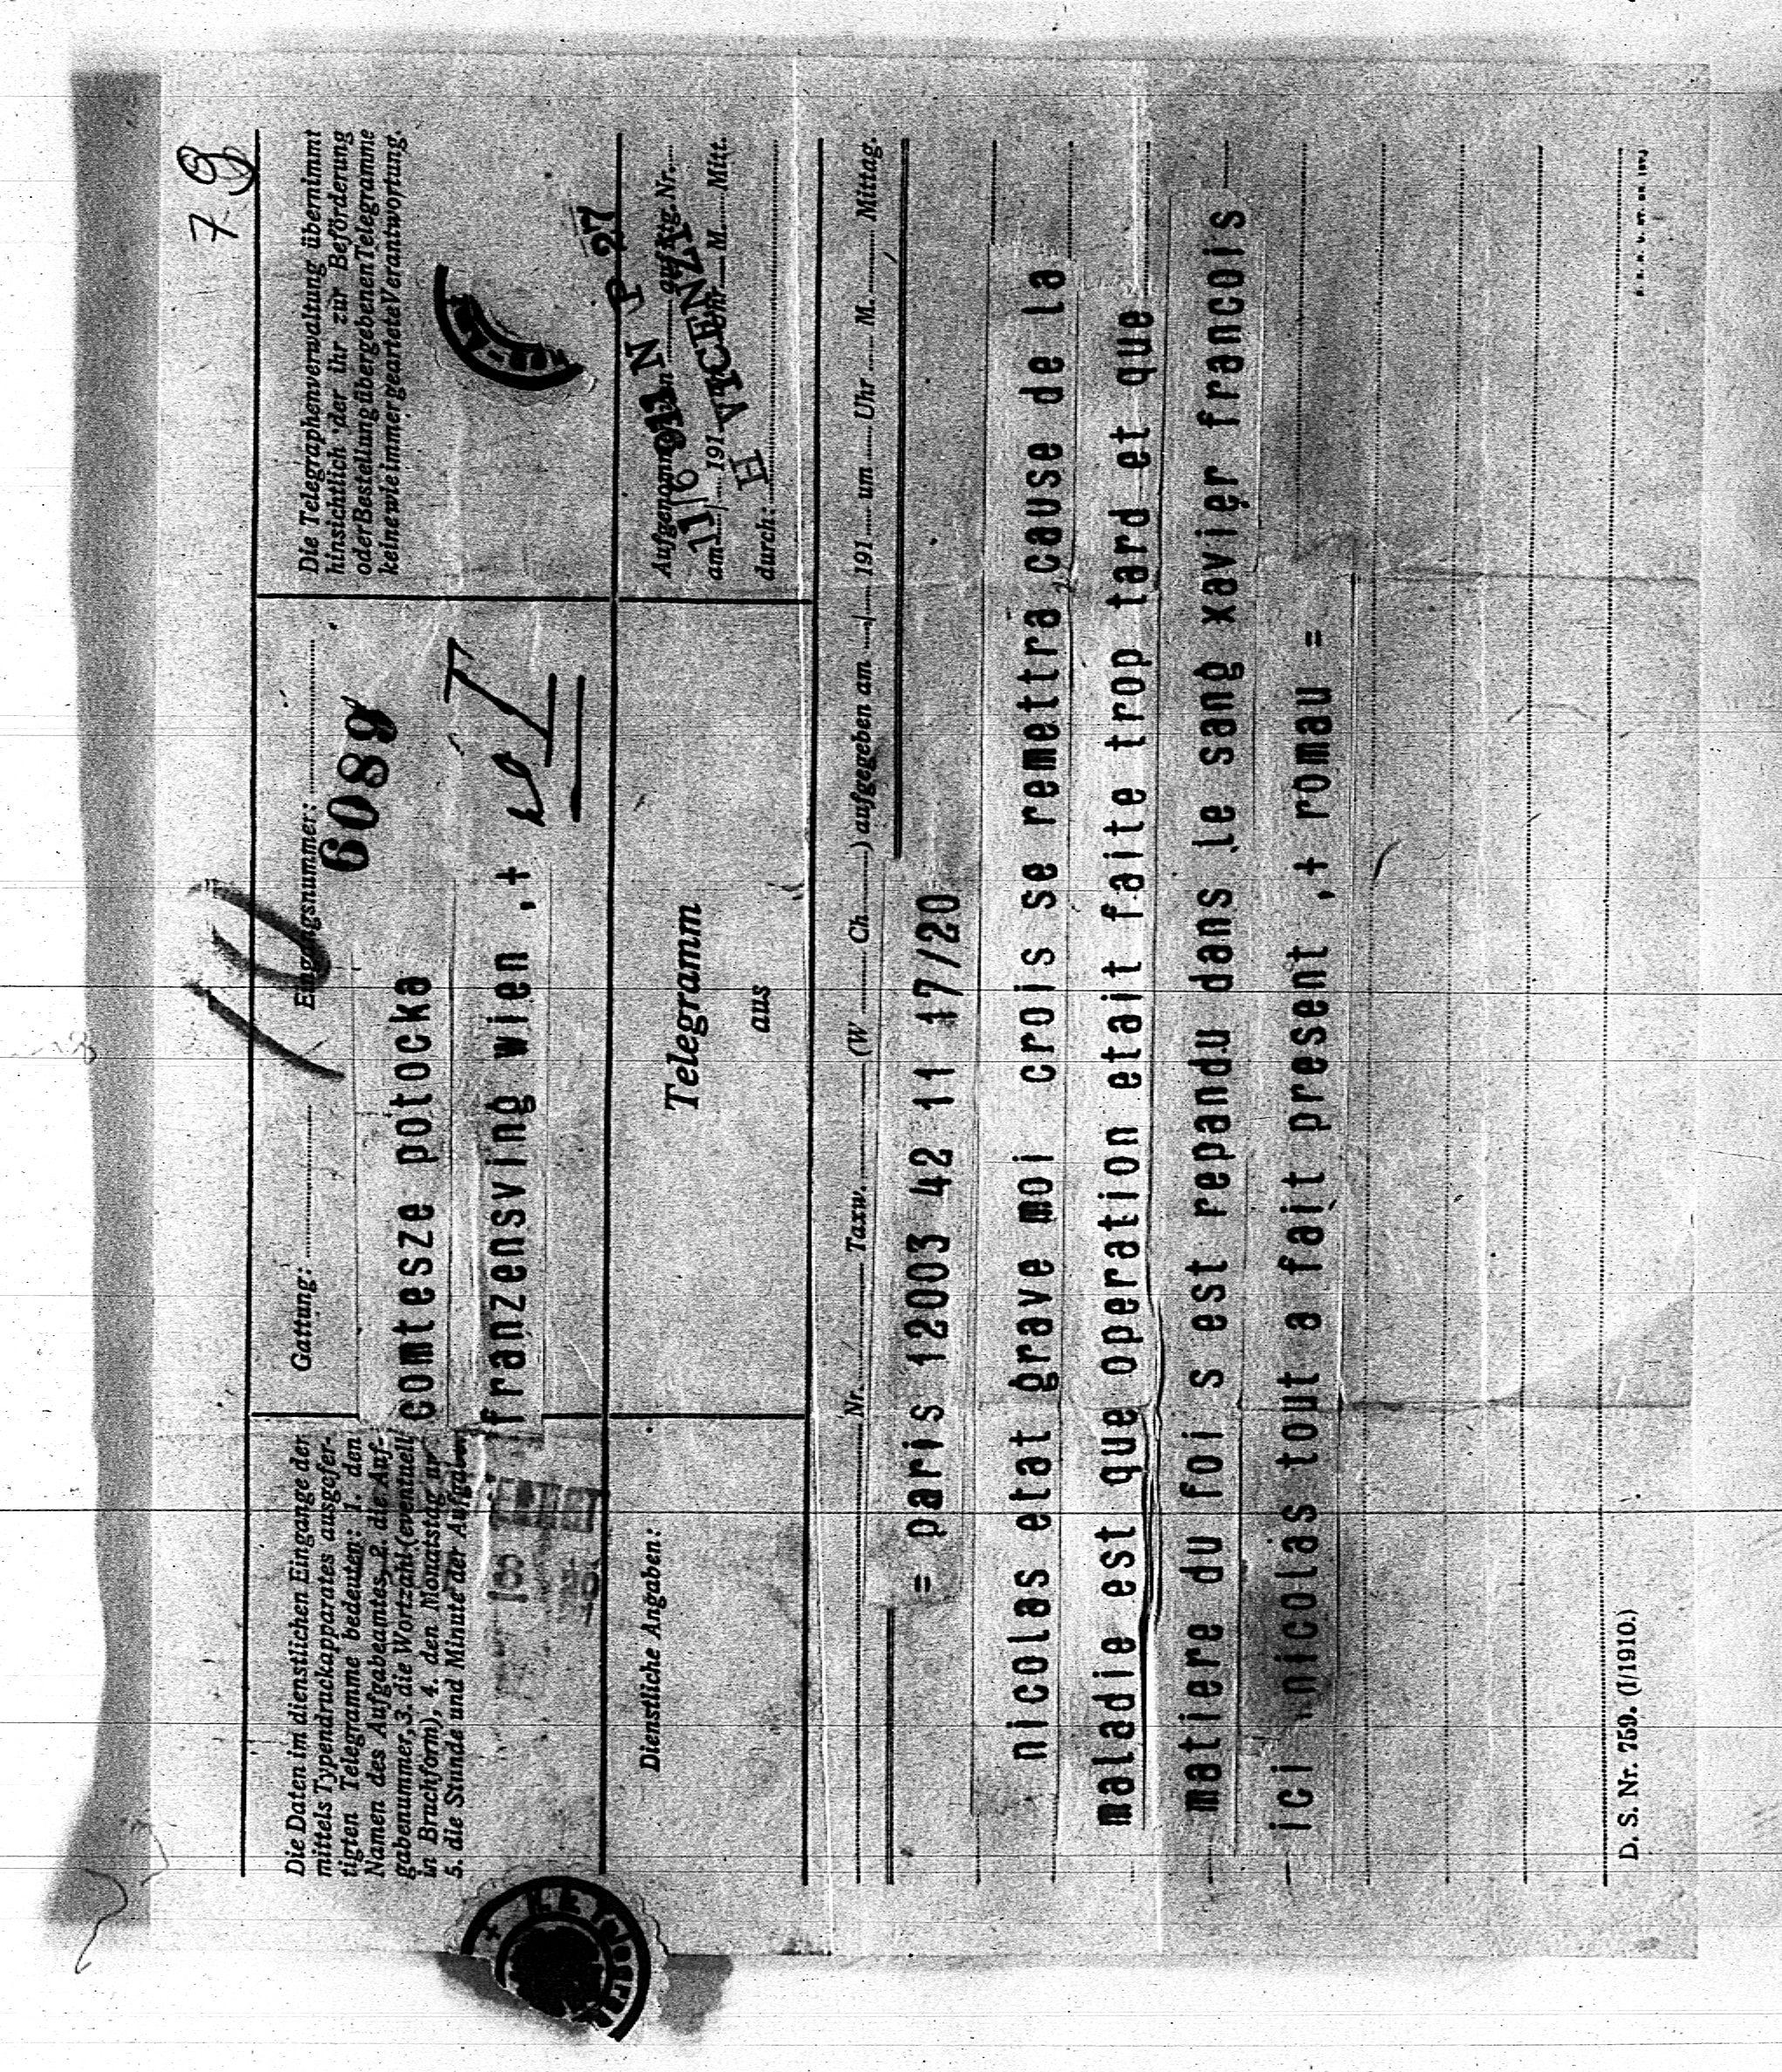 7 9
Die Daten im dienstlichen Eingange der
mittels Typendruckapparates ausgefer-
tigten Telegramme bedeuten: 1. den
Namen des Aufgabeamtes, 2. die Auf-
gabenummer, 3. die Wortzahl (eventuell
in Bruchform), 4. den Monatstag
5. die Stunde und Minute der Aufgabe.
Gattung:
Eingangsnummer:
6089
comtesze potocka
franzensving wien ,+
Die Telegraphenverwaltung übernimmt
hinsichtlich der ihr zur Beförderung
oder Bestellung übergebenen Telegramme
keine wie immer geartete Verantwortung.
Dienstliche Angaben:
Telegramm
aus
Aufgenommen auf Ltg. Nr.
am 11/6 191 Uhr M. Mitt.
durch:
Nr. Taxw. (W Ch ) aufgegeben am / 191 um Uhr M. Mittag.
= paris 12003 42 11 17/20
nicolas etat grave moi crois se remettra cause de la
maladie est que operation etait faite trop tard et que
matiere du foi s est repandu dans le sang xavier francois
ici nicolas tout a fait present ,+ romau =
D. S. Nr. 759. (I/1910.)